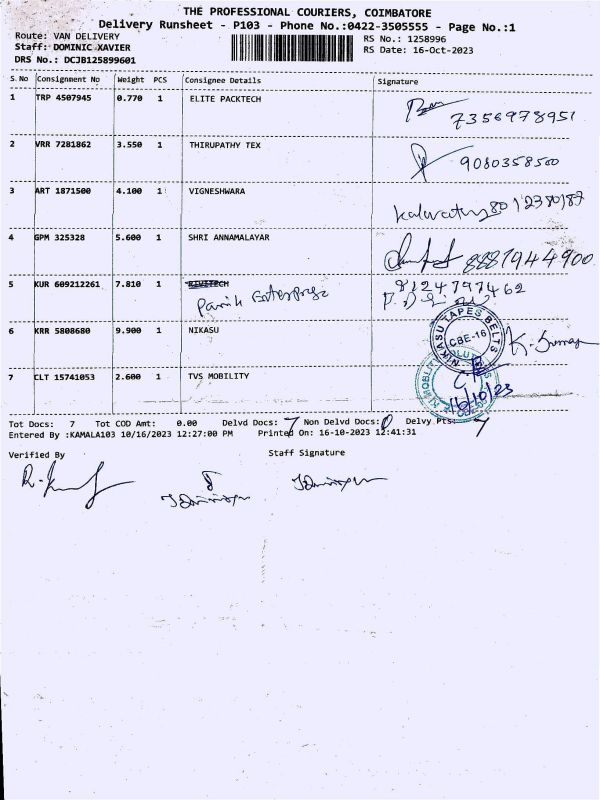 THE PROFESSIONAL COURIERS, COIMBATORE
Delivery Runsheet - P103 - Phone No.:0422-3505555 - Page No.:1
Route: VAN DELIVERY RS No.: 1258996
Staff: DOMINIC XAVIER RS Date: 16-Oct-2023
DRS No.: DCJB125899601
S.No Consignment No Weight PCS Consignee Details Signature
1 TRP 4507945 0.770 1 ELITE PACKTECH
7356978951
2 VRR 7281862 3.550 1 THIRUPATHY TEX
9080358500
3 ART 1871500 4.100 1 VIGNESHWARA
8012380187
4 GPM 325328 5.600 1 SHRI ANNAMALAYAR
8887944900
5 KUR 609212261 7.810 1
9124797462
6 KRR 5808680 9.900 1 NIKASU
NIKASU TAPES BELTS
CBE-16
K. Kumar
7 CLT 15741053 2.600 1 TVS MOBILITY
16/10/23
Tot Docs: 7 Tot COD Amt: 0.00 Delvd Docs: 7 Non Delvd Docs: 0 Delvy Pts: 7
Entered By :KAMALA103 10/16/2023 12:27:00 PM Printed On: 16-10-2023 12:41:31
Verified By Staff Signature